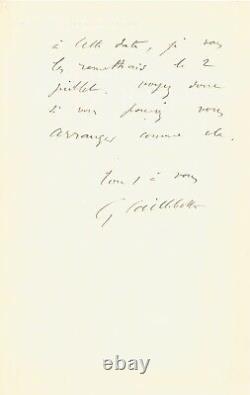 à cette date, je vous
les remettrais le 2
juillet. voyez donc
si vous pouvez vous
arranger comme cela.
tout à vous
G Caillebotte
ebay